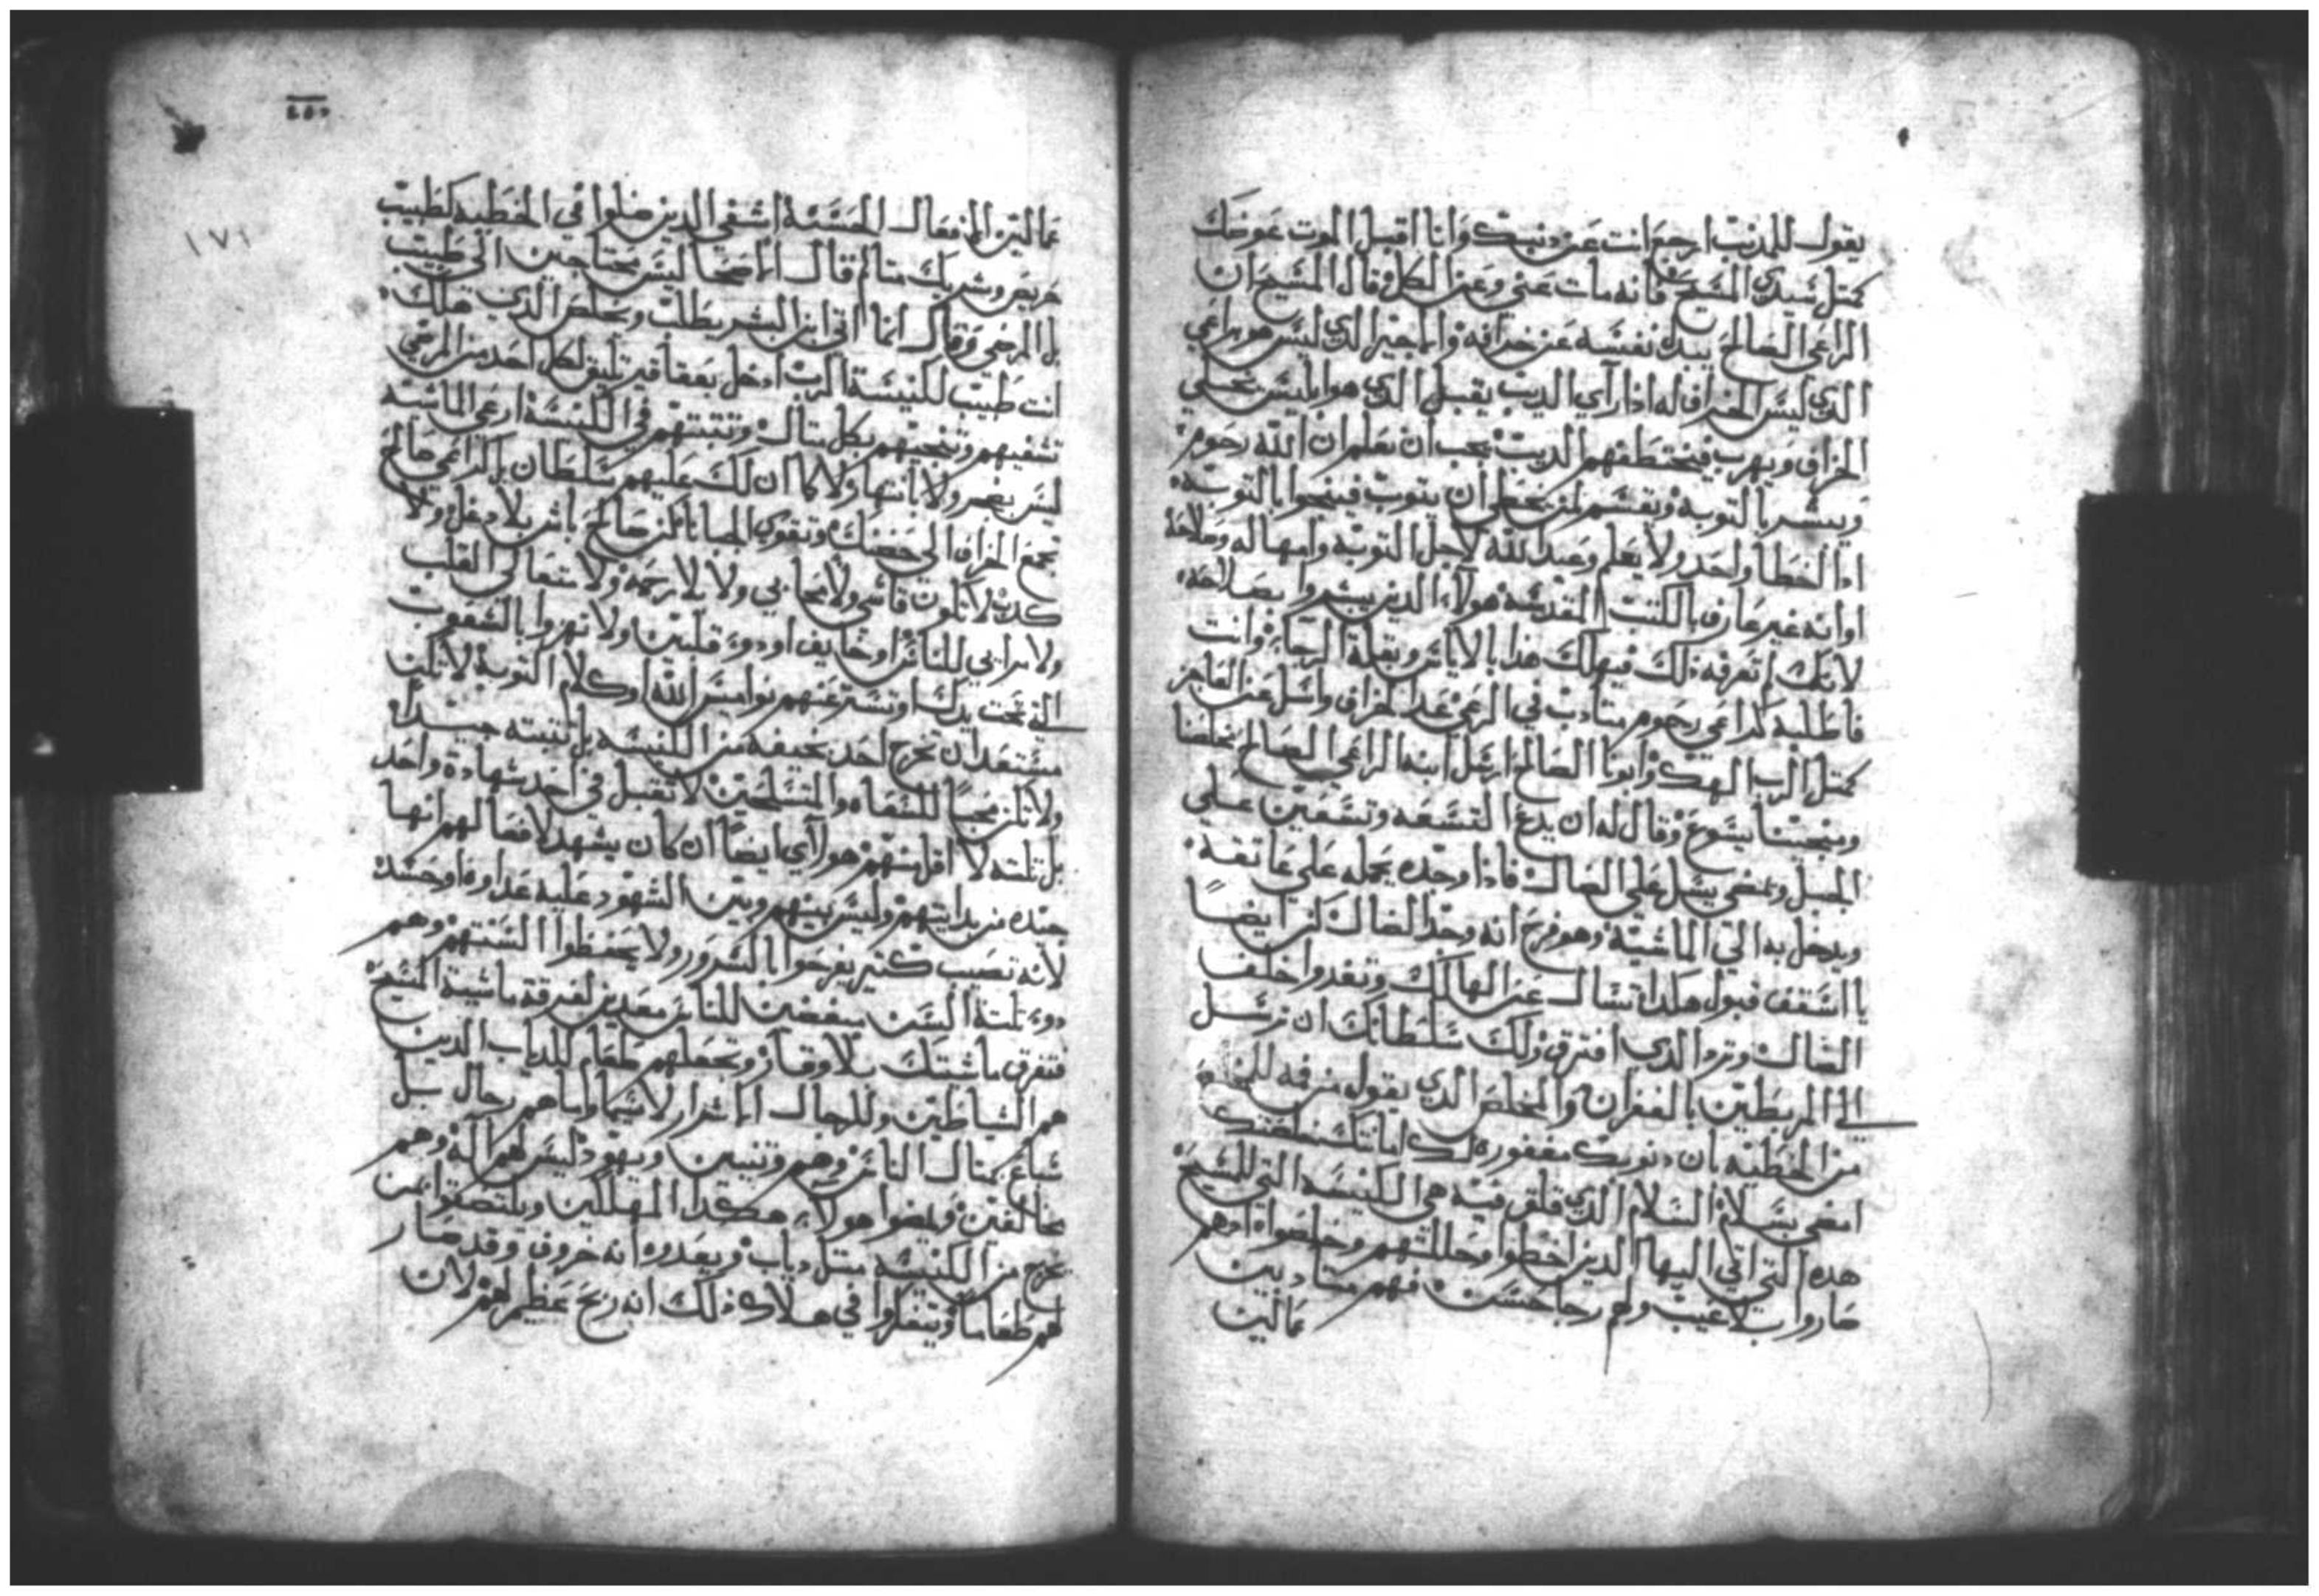 يقول للمدنب ارجع انت عن دنبك وانا اقبل الموت عوضك
كمتل سيدي المسيح فانه مات عني وعن الكل وقال المسيح ان
الراعي الصالح يبدل نفسه عن خرافه والاجير الدي ليس هو براعي
الدي ليس الخراف له ادا رآي الديب يقبل الدي هو ابليس يخلي
الخراف ويهرب فيختطفهم الديب يجب ان نعلم ان الله رحوم
ويبشر بالتوبه وتقسم لمن يخطي ان يتوب فينجوا بالتوبه
ادا اخطا واحد ولا يعلم وعبد الله لاجل التوبه وامهاله وصلاحه
او انه غير عارف بالكتب المقدسه هولاء الدين يبشروا بصلاحه
لانك ان لم تعرفه دلك فيهلك هدا بالاياس وبقلة الرجاء وانت
فاطلبه كراعي رحوم متادب في الرعي عد الخراف واسل عن العاجز
كمتل الرب الهك وابونا الصالح ارسل ابنه الراعي الصالح مخلصنا
وينجينا يسوع وقال له ان يدع التسعه وتسعين علي
الجبل ويمضي يسل علي الضال فادا وجده يحمله علي عاتقه
ويدخل به الي الماشيه وهو فرح انه وجد الضال كن ايضا
يا اسقف قبول هكدا تسال عن الهالك وتغدوا خلف
الضال وترد الدي افترق ولك سلطانك ان ترسل
الي المربطين بالغفران والمخلص الدي يقول من فمه للمخلع
من الخطيه بان دنوبك مغفوره لك امانتك خلصتك
امضي بسلام السلام الدي قلق فيه هي الكنيسه التي للمسيح
هده التي اتي اليها الدين اخطوا وحللتهم وخلصوا اد هم
صاروا بلا عيب ولهم رجا حسن فهم متادبين
عمالين
٥٥٢
١٧١
عمالين الافعال الحسنه اشفي الدين ضلوا في الخطيه كطبيب
حريص وشريك متالم قال الاصحا ليس محتاجين الي طبيب
بل المرضي وقال انما اتي ابن البشر يطلب ويخلص الدي هلك
انت طبيب لكنيسة الرب ادخل بعقاقير تليق لكل احد من المرضي
تشفيهم وتنجيهم بكل متال وتتبتهم في الكنيسة ارعي الماشيه
ليس بغصر ولا بانتهار ولا كما ان لك عليهم سلطان بل كراعي صالح
تجمع الخراف الي حضنك وتقوي الحبالا كن صالح باشر بلا دغل ولا
كدب لا تكون قاسي ولا محابي ولا بلا رحمه ولا متعالي القلب
ولا مرايي للناس او خايف او دو قلبين ولا تهزوا بالشعوب
الدي تحت يدك او تستر عنهم نواميس الله او كلام التوبه لا تكن
مستعد ان تخرج احد بخيفه من الكنيسه بل تتبته جيدا
ولا تكن محبا للنفاه والمتسلحين لا تقبل في احد شهادة واحد
بل تلته لا اقل منهم هوا آي ايضا ان كان يشهد لافعالهم انها
جيده من بدايتهم وليس بينهم وبين الشهود عليه عداوه او حسد
لانه نصيب كتير يفرحوا بالشرور ولا يحفظوا السنتهم وهم
دو تلتة السن مبغضين للناس معدين لفرقة ماشية المسيح
فتفرق ماشيتك بلا وقار وتجعلهم طعام للدياب الدين
هم الشياطين وللرجال الاشرار لاسيما واما هم رجال بل
سباع بمتال الناس وهم وتنيين ويهود ليس لهم اله وهم
مخالفين ويمضوا هولاء هكدا المهلكين ويلتصقوا بمن
يخرج من الكنيسه متل دياب ويعدوه انه خروف وقد صار
لهم طعاما ويتفكروا في هلاك دلك انه ربح عظيم لهم لان